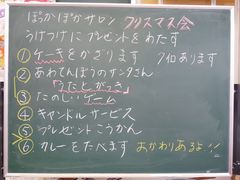 ぽっかぽかサロン クリスマス会
うけつけに プレゼントを わたす
① ケーキを かざります 7個あります
② あわてんぼうのサンタさん
「うたとがっき」
③ たのしい ゲーム
④ キャンドルサービス
⑤ プレゼント こうかん
⑥ カレーをたべます おかわりあるよ!!